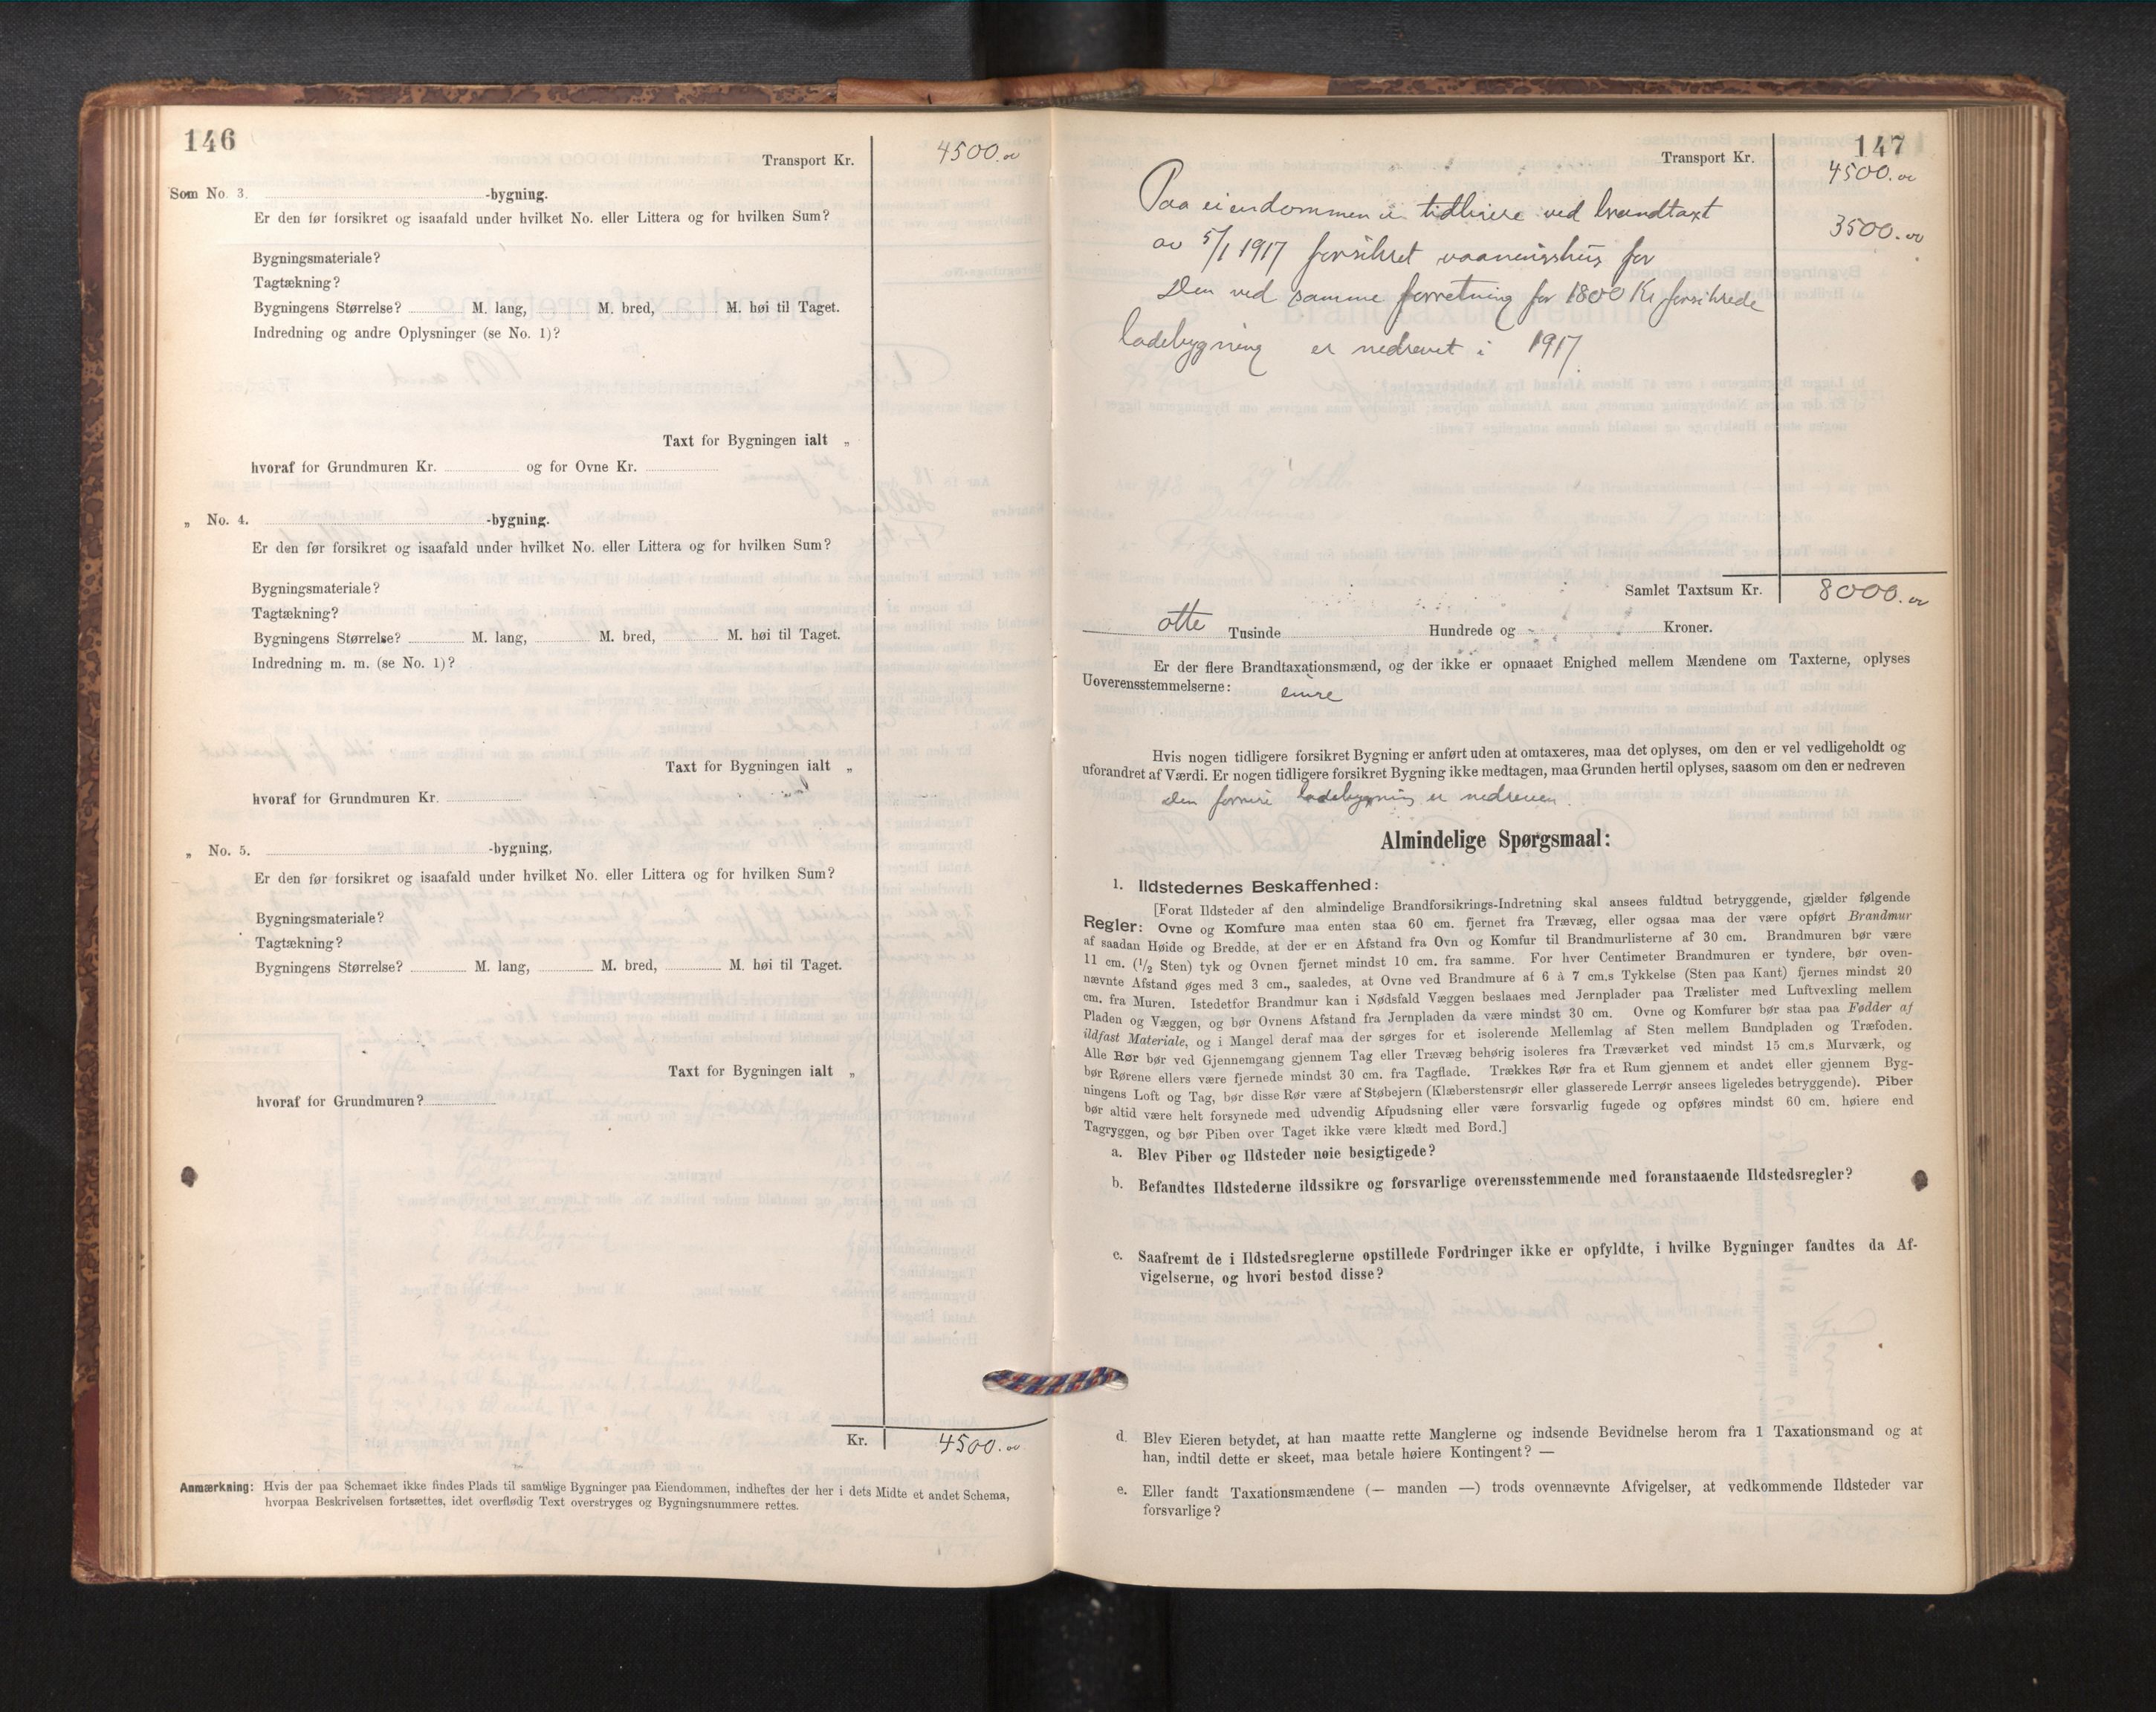 146
Transport Kr. 4500.00
Som No. 3. -bygning.
Er den før forsikret og isaafald under hvilket No. eller Littera og for hvilken Sum?
Bygningsmateriale?
Tagtækning?
Bygningens Størrelse? M. lang, M. bred, M. høi til Taget.
Indredning og andre Oplysninger (se No. 1)?
Taxt for Bygningen ialt „
hvoraf for Grundmuren Kr. og for Ovne Kr.
„ No. 4. -bygning.
Er den før forsikret og isaafald under hvilket No. eller Littera og for hvilken Sum?
Bygningsmateriale?
Tagtækning?
Bygningens Størrelse? M. lang, M. bred, M. høi til Taget.
Indredning m. m. (se No. 1)?
Taxt for Bygningen ialt „
hvoraf for Grundmuren Kr.
„ No. 5. -bygning,
Er den før forsikret og isaafald under hvilket No. eller Littera og for hvilken Sum?
Bygningsmateriale?
Tagtækning?
Bygningens Størrelse? M. lang, M. bred, M. høi til Taget.
Taxt for Bygningen ialt „
hvoraf for Grundmuren?
Kr. 4500.00
Anmærkning: Hvis der paa Schemaet ikke findes Plads til samtlige Bygninger paa Eiendommen, indheftes der her i dets Midte et andet Schema,
hvorpaa Beskrivelsen fortsættes, idet overflødig Text overstryges og Bygningsnummere rettes.
147
Transport Kr. 4500.00
Paa eiendommen er tidligere ved brandtaxt
av 5/1 1917 forsikret vaaningshus for 3500.00
Den ved samme forretning for 1800 Kr forsikrede
ladebygning er nedrevet i 1917.
Samlet Taxtsum Kr. 8000.00
otte Tusinde Hundrede og Kroner.
Er der flere Brandtaxationsmænd, og der ikke er opnaaet Enighed mellem Mændene om Taxterne, oplyses
Uoverensstemmelserne:
Hvis nogen tidligere forsikret Bygning er anført uden at omtaxeres, maa det oplyses, om den er vel vedligeholdt og
uforandret af Værdi. Er nogen tidligere forsikret Bygning ikke medtagen, maa Grunden hertil oplyses, saasom om den er nedreven
Den forrige ladebygning er nedreven.
Almindelige Spørgsmaal:
1. Ildstedernes Beskaffenhed:
[Forat Ildsteder af den almindelige Brandforsikrings-Indretning skal ansees fuldtud betryggende, gjælder følgende
Regler: Ovne og Komfure maa enten staa 60 cm. fjernet fra Trævæg, eller ogsaa maa der være opført Brandmur
af saadan Høide og Bredde, at der er en Afstand fra Ovn og Komfur til Brandmurlisterne af 30 cm. Brandmuren bør være
11 cm. (1/2 Sten) tyk og Ovnen fjernet mindst 10 cm. fra samme. For hver Centimeter Brandmuren er tyndere, bør oven-
nævnte Afstand øges med 3 cm., saaledes, at Ovne ved Brandmure af 6 à 7 cm.s Tykkelse (Sten paa Kant) fjernes mindst 20
cm. fra Muren. Istedetfor Brandmur kan i Nødsfald Væggen beslaaes med Jernplader paa Trælister med Luftvexling mellem
Pladen og Væggen, og bør Ovnens Afstand fra Jernpladen da være mindst 30 cm. Ovne og Komfurer bør staa paa Fødder af
ildfast Materiale, og i Mangel deraf maa der sørges for et isolerende Mellemlag af Sten mellem Bundpladen og Træfoden.
Alle Rør bør ved Gjennemgang gjennem Tag eller Trævæg behørig isoleres fra Træværket ved mindst 15 cm.s Murværk, og
bør Rørene ellers være fjernede mindst 30 cm. fra Tagflade. Trækkes Rør fra et Rum gjennem et andet eller gjennem Byg-
ningens Loft og Tag, bør disse Rør være af Støbejern (Klæberstensrør eller glasserede Lerrør ansees ligeledes betryggende). Piber
bør altid være helt forsynede med udvendig Afpudsning eller være forsvarlig fugede og opføres mindst 60 cm. høiere end
Tagryggen, og bør Piben over Taget ikke være klædt med Bord.]
a. Blev Piber og Ildsteder nøie besigtigede?
b. Befandtes Ildstederne ildssikre og forsvarlige overensstemmende med foranstaaende Ildstedsregler?
c. Saafremt de i Ildstedsreglerne opstillede Fordringer ikke er opfyldte, i hvilke Bygninger fandtes da Af-
vigelserne, og hvori bestod disse?
d. Blev Eieren betydet, at han maatte rette Manglerne og indsende Bevidnelse herom fra 1 Taxationsmand og at
han, indtil dette er skeet, maa betale høiere Kontingent? —
e. Eller fandt Taxationsmændene (— manden —) trods ovennævnte Afvigelser, at vedkommende Ildsteder var
forsvarlige?